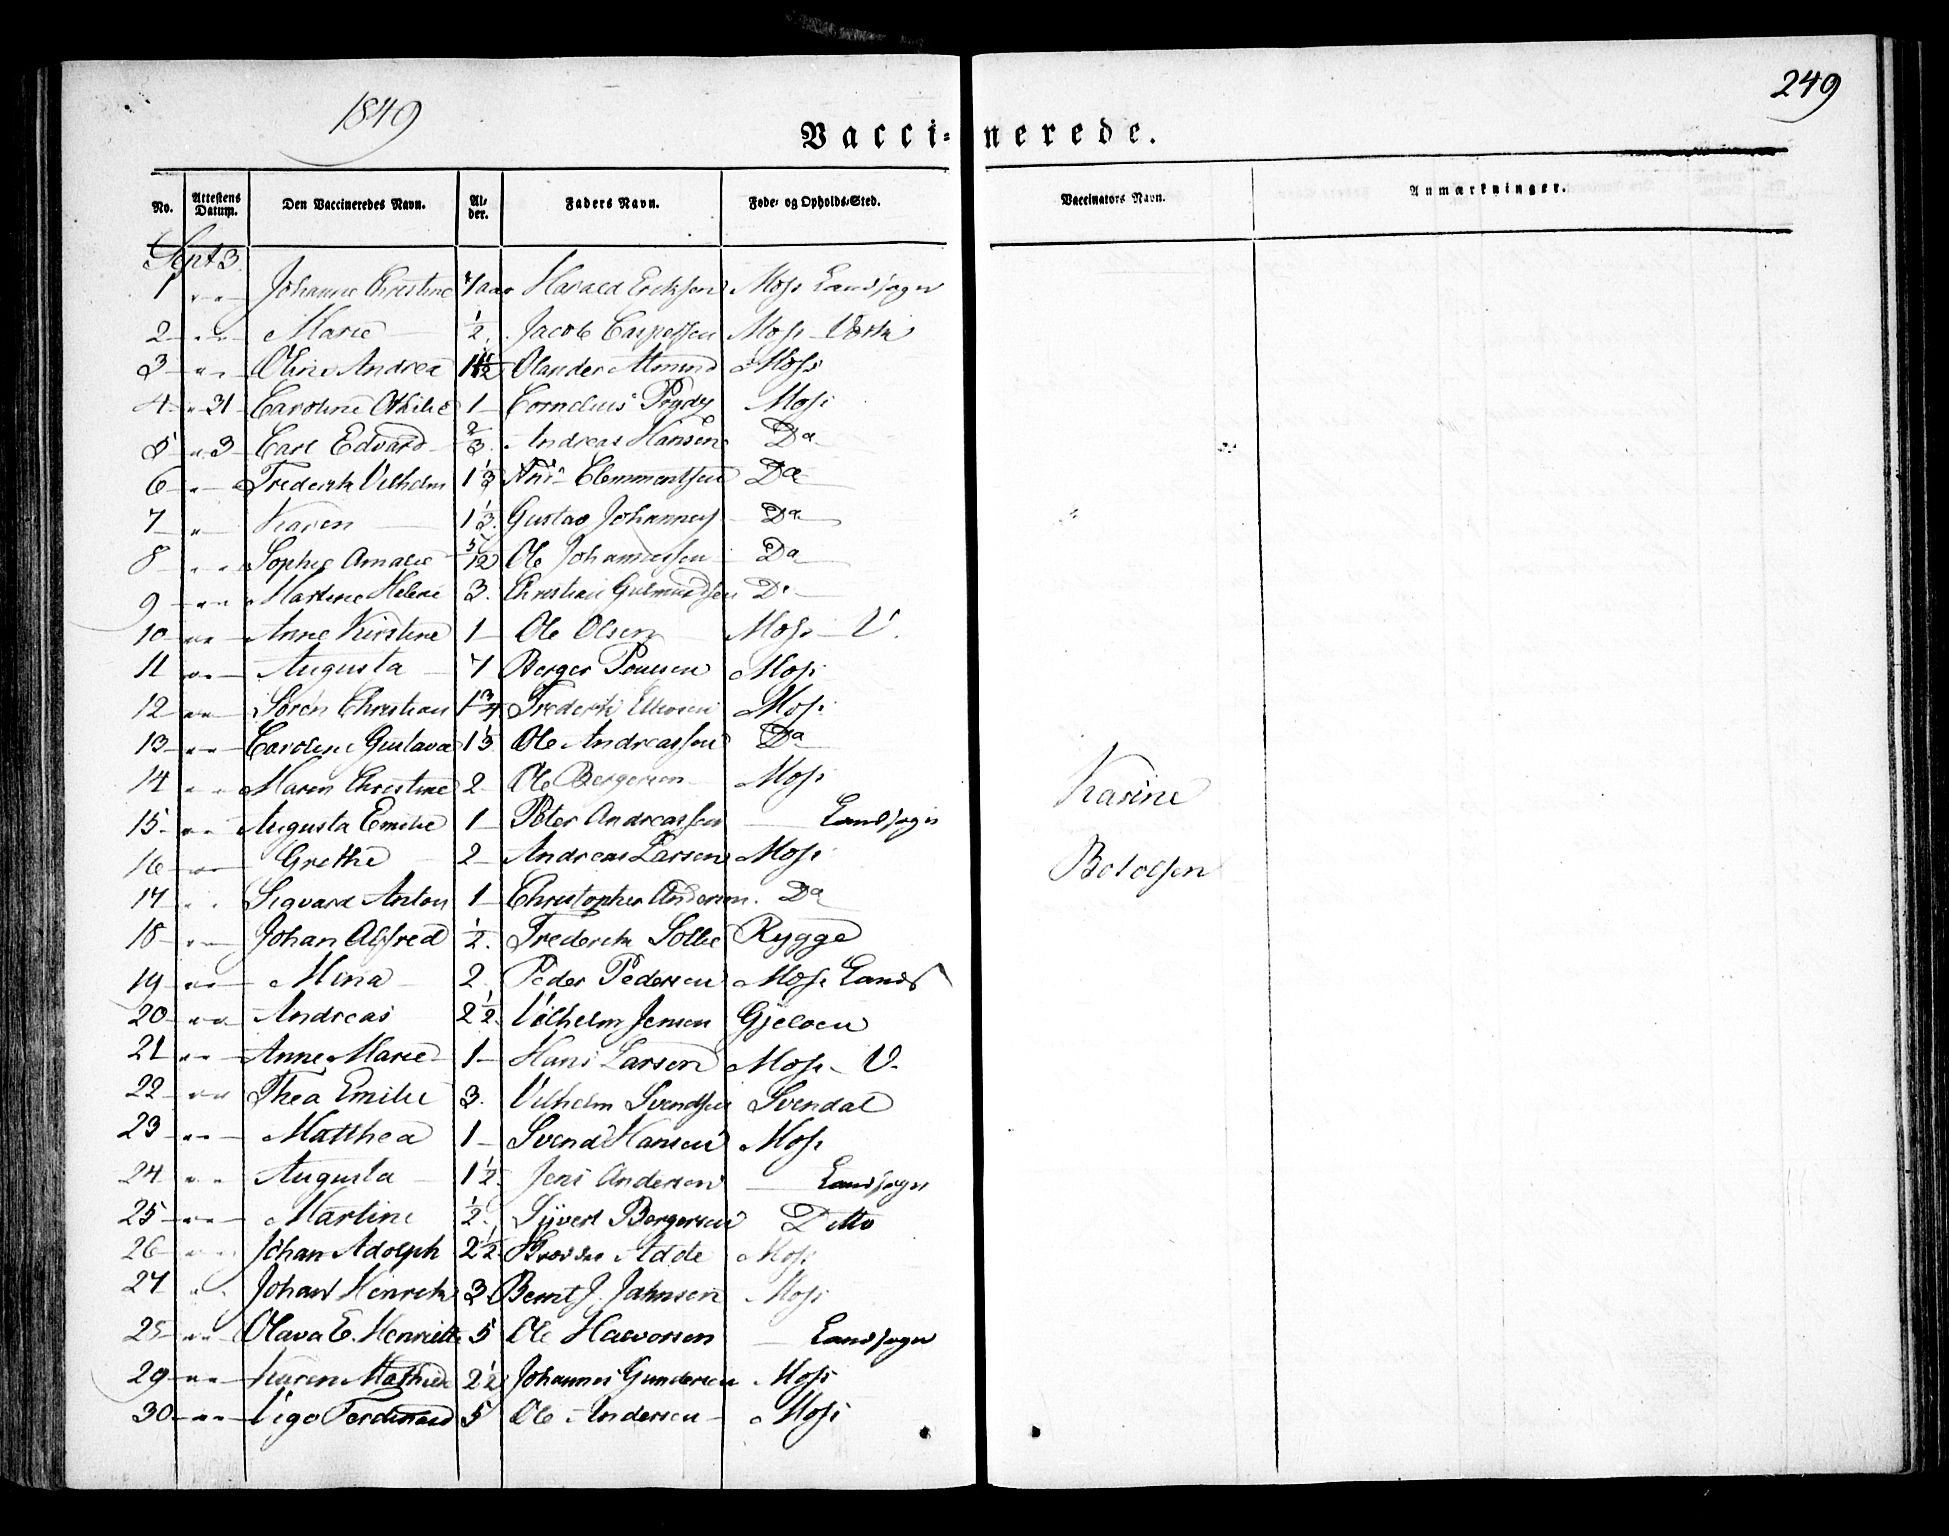 1849
249
Vacci- nerede.
No. Attestens Datum. Den Vaccineredes Navn. Al- der. Faders Navn. Føde- og Opholds-Sted. Vaccinators Navn. Anmærkninger.
Sept 3.
1 " " Johanne Christine 7 aar Harald Eriksen Moss Landsogn
2 " " Marie 1/2. Jacob Moss
3 " " Oline Andrea 1 1/2 Olander Moss
4 " 31 Caroline Othilie 1 Cornelius Moss
5 " 3 Carl Edvard 2/3. Andreas Hansen Do
6 " Frederik Vilhelm 1 1/3 Clemmentsen Do
7 " Karen 1 1/3. Gustav Johannes Do
8 " " Sophie Amalie 5/12 Ole Johannessen Do
9 " " Martine Helene 3. Christian Gulmundsen Do
10 " " Anne Kirstine 1 Ole Olsen Moss V.
11 " " Augusta 7 Berger Poulsen Moss
12 " " Søren Christian 1 3/4 Frederik Moss
13 " " Caroline Gustava 1 1/3 Ole Andreassen Do
14 " " Maren Christine 2 Ole Bergersen Moss
Karine
15 " " Augusta Emilie 1 Peter Andreassen — Landsogn
16 " " Grethe 2 Andreas Larsen Moss
Botolfsen
17 " " Sigvard Anton 1 Christopher Andersen. Do
18 " Johan Alfred 1/2. Frederik Sollie Rygge
19 " " Mina 2 Peder Pedersen Moss Lands
20 " " Andreas 2 1/2. Vilhelm Jensen Gjeloen
21 " " Anne Marie 1 Hans Larsen Moss V.
22 " " Thea Emilie 3. Vilhelm Svendsen Svendal
23 " " Matthea 1 Svend Hansen Moss
24 " " Augusta 1 1/2. Jens Andersen — Landsogn
25 " " Martine 1/2. Syvert Bergersen Ditto
26 " " Johan Adolph 2 1/2. Adde Moss
27 " " Johan Henrich 3 Bernt J. Jahnsen Moss
28 " " Olava E. Henriette 5 Ole Halvorsen — Landsogn
29 " " Karen Mathilde 2 1/2 Johannes Gundersen Moss
30 " " Vigo Ferdinand 5 Ole Andersen Moss